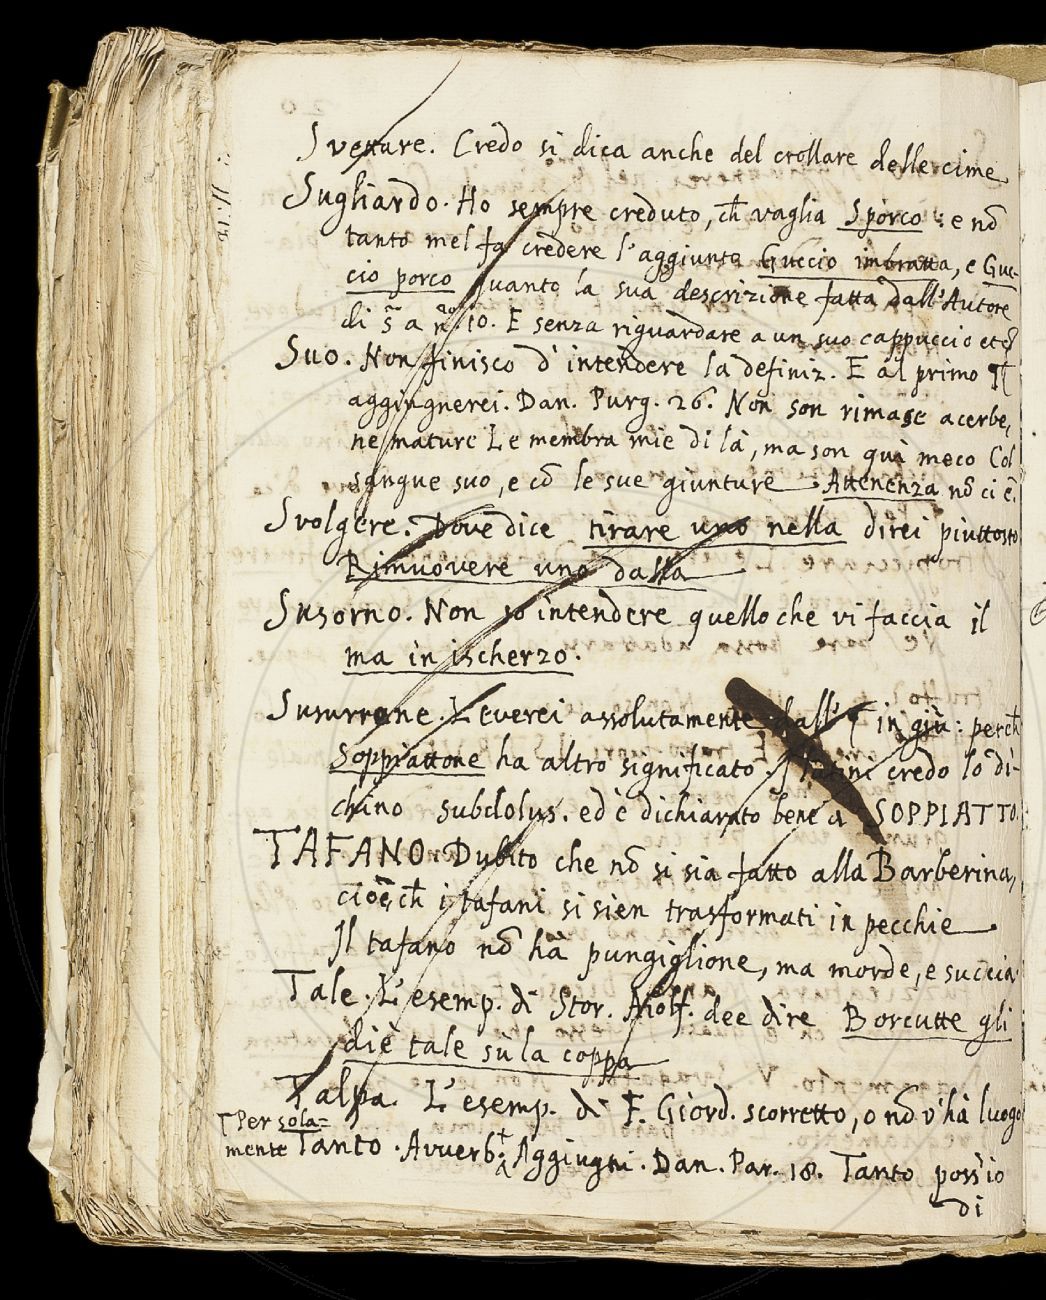 Svettare. Credo si dica anche del crollare delle cime
Sugliardo. Ho sempre creduto, ch̄ vaglia Sporco: e nō
tanto mel fa credere l'aggiunto Guccio imbratta, e Guc-
cio porco quanto la sua descrizione fatta dall'Autore
di s̄a a n.º 10. E senza riguardare a un suo cappuccio etc
Suo. Non finisco d'intendere la definiz. E al primo ¶
aggiugnerei. Dan. Purg. 26. Non son rimase acerbe,
ne mature Le membra mie di là, ma son quì meco Col
sangue suo, e cō le sue giunture. Attenenza nō ci è.
Svolgere. Dove dice tirare uno nella direi piuttosto
Rimuovere uno dalla
Susorno. Non so intendere quello che vi faccia il
ma in ischerzo.
Susurrone. Leverei assolutamente dall' ¶ in giù: perch̄
Soppiattone ha altro significato. I latini credo lo di-
chino subdolus. ed è dichiarato bene a SOPPIATTO.
TAFANO. Dubito che nō si sia fatto alla Barberina,
cioè, ch̄ i tafani si sien trasformati in pecchie
Il tafano nō hà pungiglione, ma morde, e succia
Tale. L'esemp. di Stor. Aiolf. dee dire Borcutte gli
diè tale su la coppa
Talpa. L'esemp. di F. Giord. scorretto, o nō v'hà luogo
Per sola=
mente Tanto. Avverb. Aggiugni. Dan. Par. 18. Tanto poss'io
di